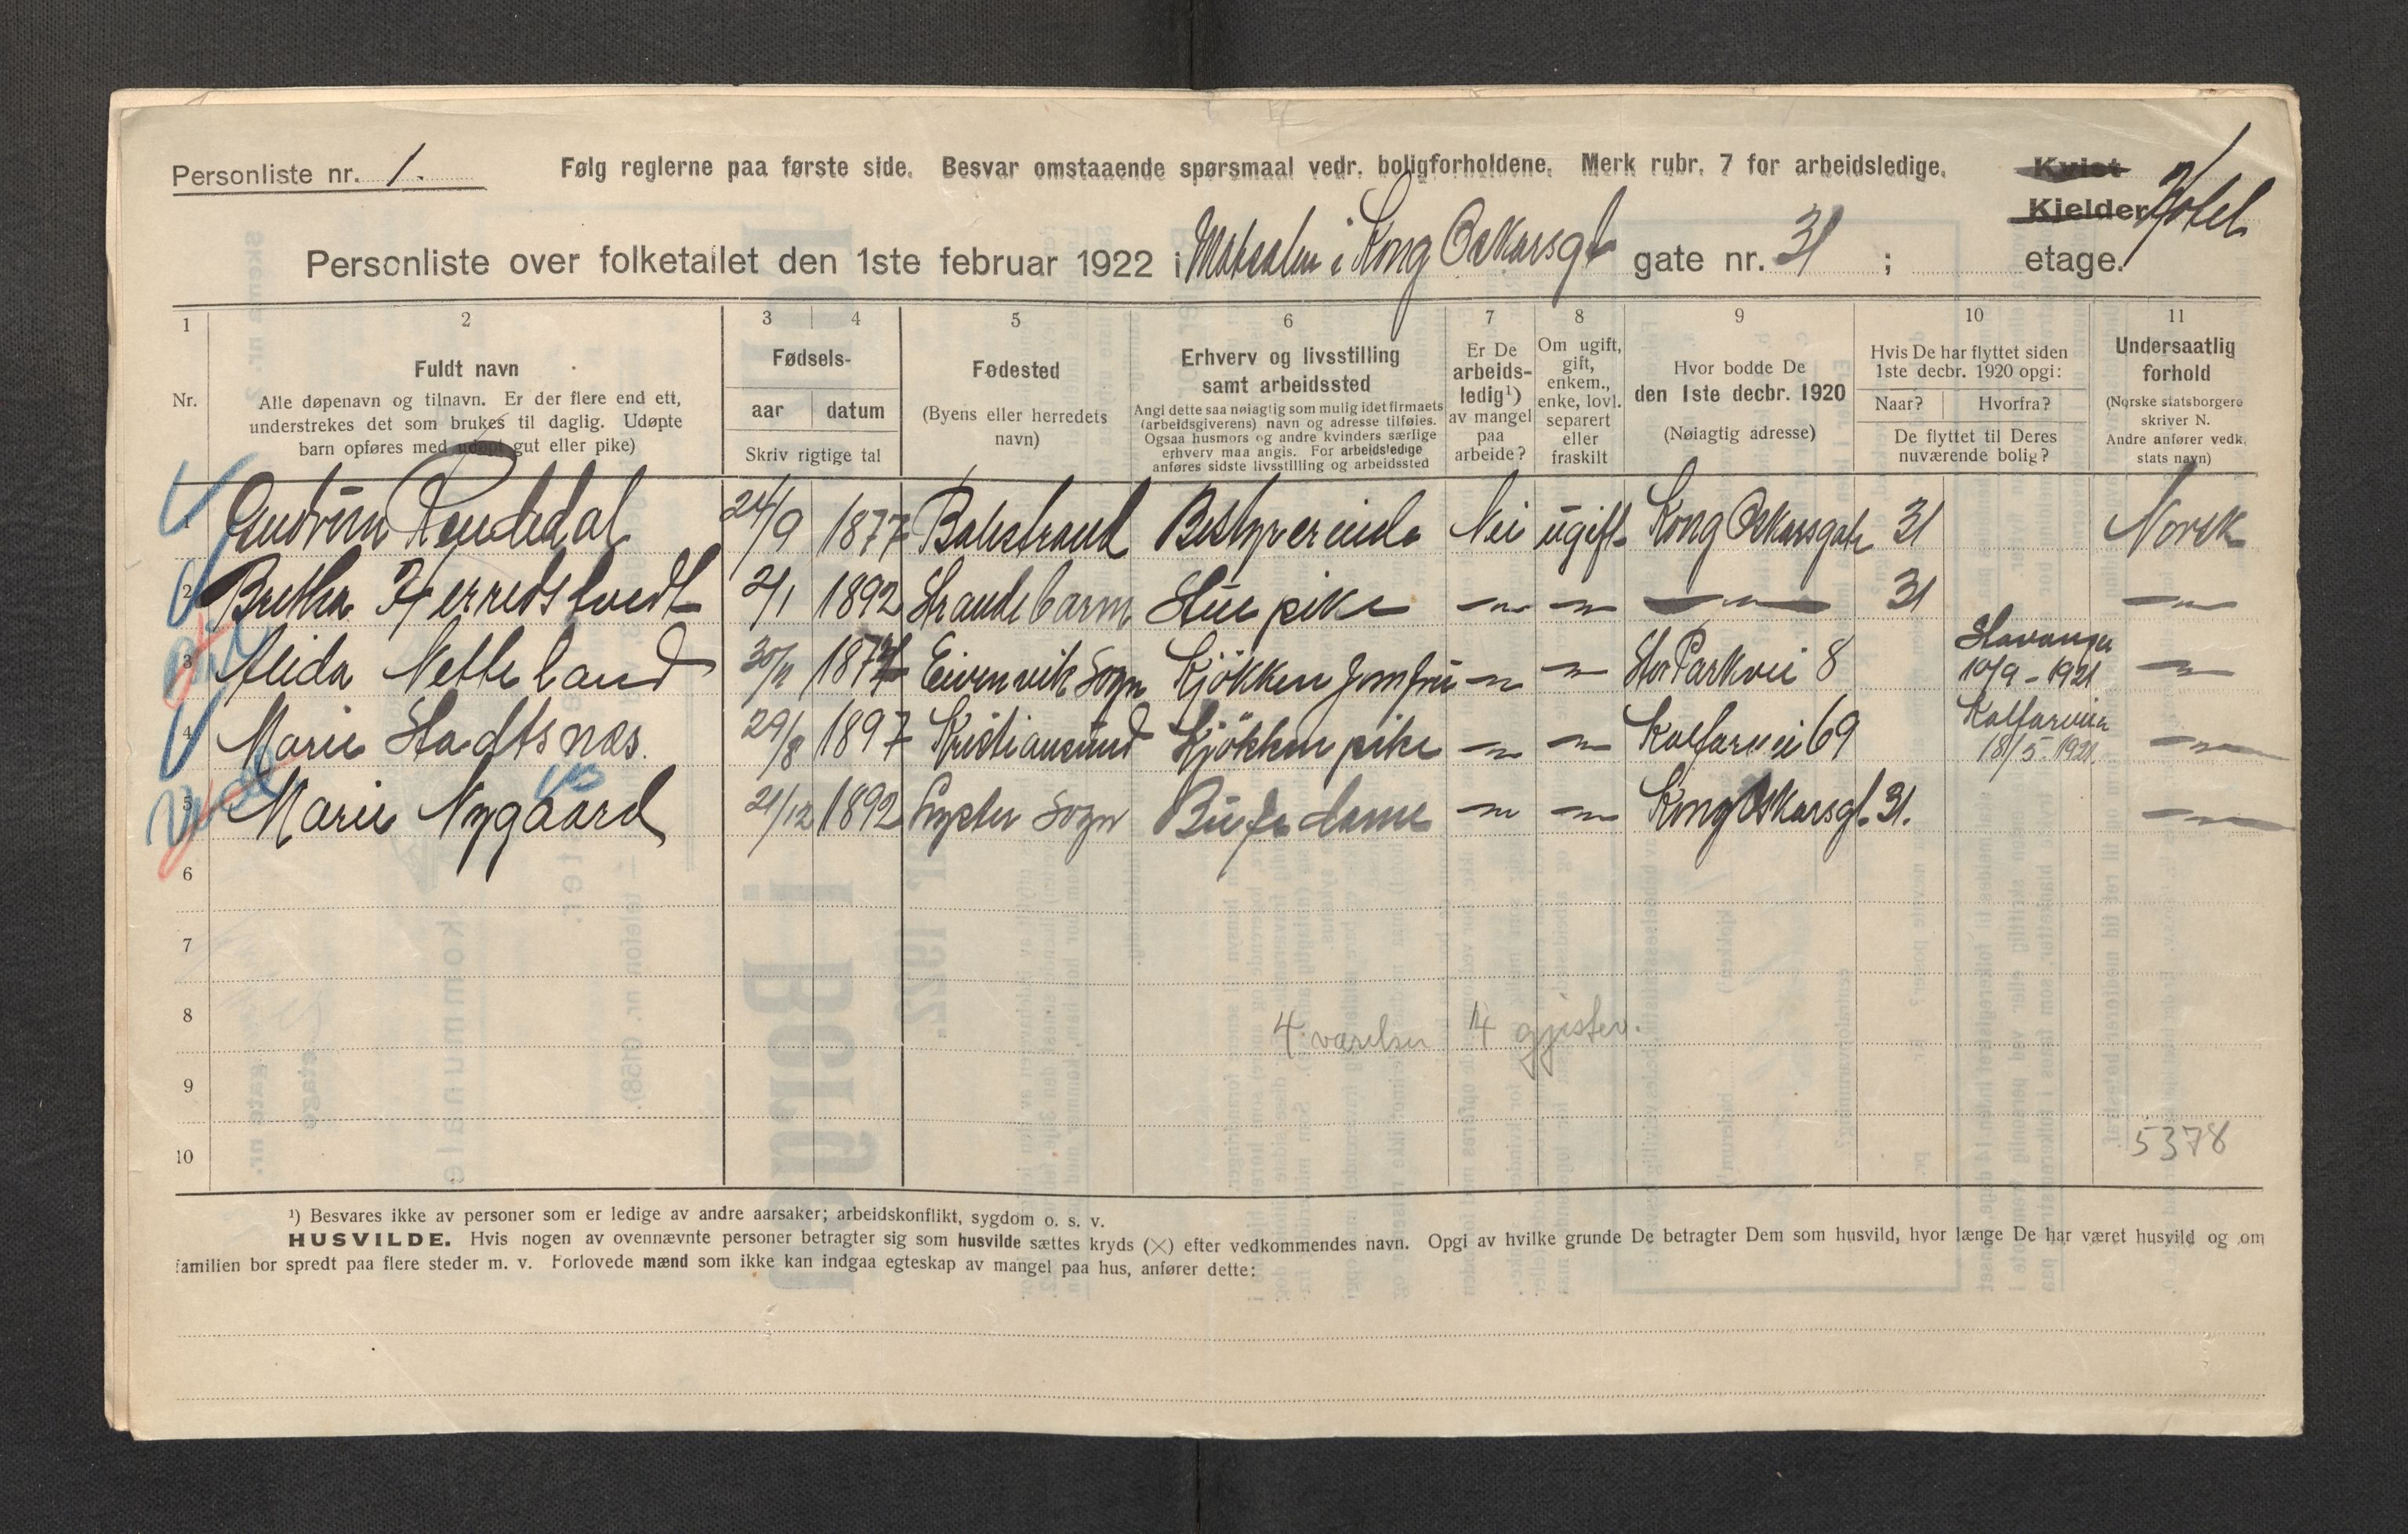 Personliste nr. 1.
Følg reglerne paa første side. Besvar omstaaende spørsmaal vedr. boligforholdene. Merk rubr. 7 for arbeidsledige.
Kvist
Kjelder Hotel
Personliste over folketallet den 1ste februar 1922 i Matsalen i Kong Oskarsgt gate nr. 31 ; etage.
1 2 3 4 5 6 7 8 9 10 11
Nr.
Fuldt navn
Alle døpenavn og tilnavn. Er der flere end ett,
understrekes det som brukes til daglig. Udøpte
barn opføres med udøpt gut eller pike)
Fødsels-
aar datum
Skriv rigtige tal
Fødested
(Byens eller herredets
navn)
Erhverv og livsstilling
samt arbeidssted
Angi dette saa nøiagtig som mulig idet firmaets
(arbeidsgiverens) navn og adresse tilføies.
Ogsaa husmors og andre kvinders særlige
erhverv maa angis. For arbeidsledige
anføres sidste livsstilling og arbeidssted
Er De
arbeids-
ledig¹)
av mangel
paa
arbeide?
Om ugift,
gift,
enkem.,
enke, lovl.
separert
eller
fraskilt
Hvor bodde De
den 1ste decbr. 1920
(Nøiagtig adresse)
Hvis De har flyttet siden
1ste decbr. 1920 opgi:
Naar? Hvorfra?
De flyttet til Deres
nuværende bolig?
Undersaatlig
forhold
(Norske statsborgere
skriver N.
Andre anfører vedk.
stats navn)
1 Gudrun 24/9 1877 Balestrand Bestyrerinde Nei ugift Kong Oskarsgate 31 Norsk
2 Bretha Herredstvedt 2/1 1892 Strandebarm Stue pike — — — 31 —
3 Alida Netteland 30/11 Eivenvik Sogn Kjökken Jomfru — — Str Parkvei 8 Stavanger 10/9 - 1921 —
4 Marie Stadtsnæs. 29/8 1897 Kristiansund Kjökken pike — — Kalfarvei 69 Kalfarveien 18/5 - 1921 —
5 Marie Nygaard 21/12 1892 Lyster Sogn Büfe dame — — Kong Oskarsgt. 31. —
6
7
8 4 værelser 4 gjester.
9
10 5378
¹) Besvares ikke av personer som er ledige av andre aarsaker; arbeidskonflikt, sygdom o. s. v.
HUSVILDE. Hvis nogen av ovennævnte personer betragter sig som husvilde sættes kryds (×) efter vedkommendes navn. Opgi av hvilke grunde De betragter Dem som husvild, hvor længe De har været husvild og om
familien bor spredt paa flere steder m. v. Forlovede mænd som ikke kan indgaa egteskap av mangel paa hus, anfører dette: